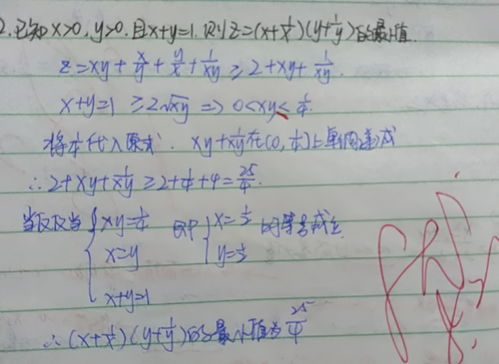 2.已知x>0,y>0.且x+y=1.则z=(x+1/x)(y+1/y)的最小值.
z=xy+x/y+y/x+1/xy≥2+xy+1/xy.
x+y=1≥2√xy => 0<xy≤1/4.
将1/4代入原式.xy+1/xy在(0,1/4)上单调递减
∴2+xy+1/xy≥2+1/4+4=25/4.
当且仅当{xy=1/4 x=y x+y=1 即{x=1/2 y=1/2 时等号成立
∴(x+1/x)(y+1/y)的最小值为25/4